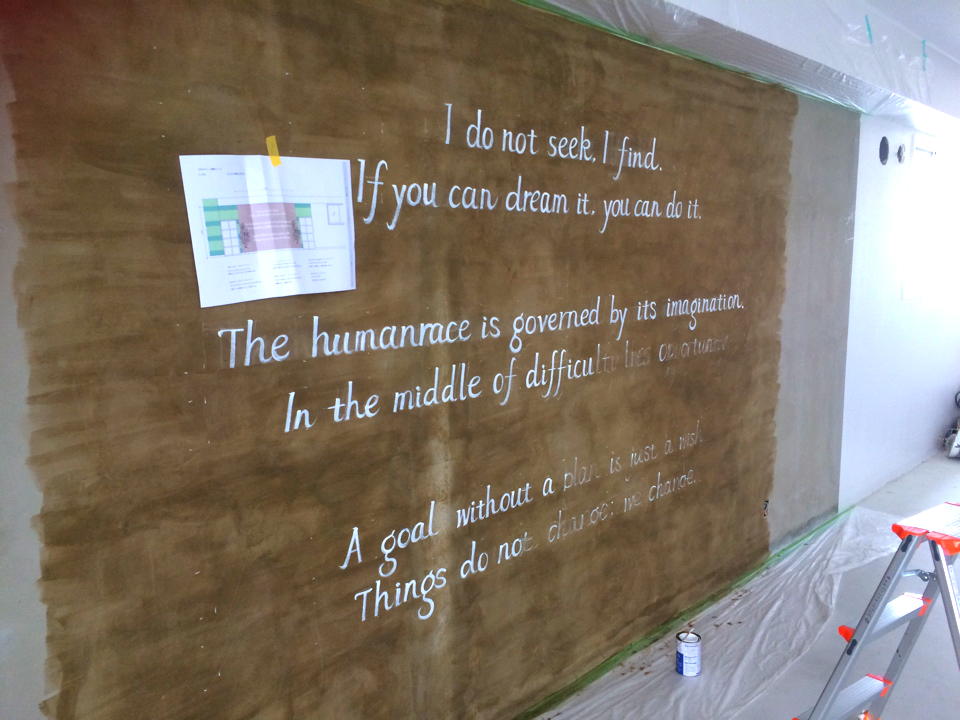 I do not seek, I find.
If you can dream it, you can do it.
The humanrace is governed by its imagination.
In the middle of difficulty lies opportunity
A goal without a plan is just a wish
Things do not change; we change.